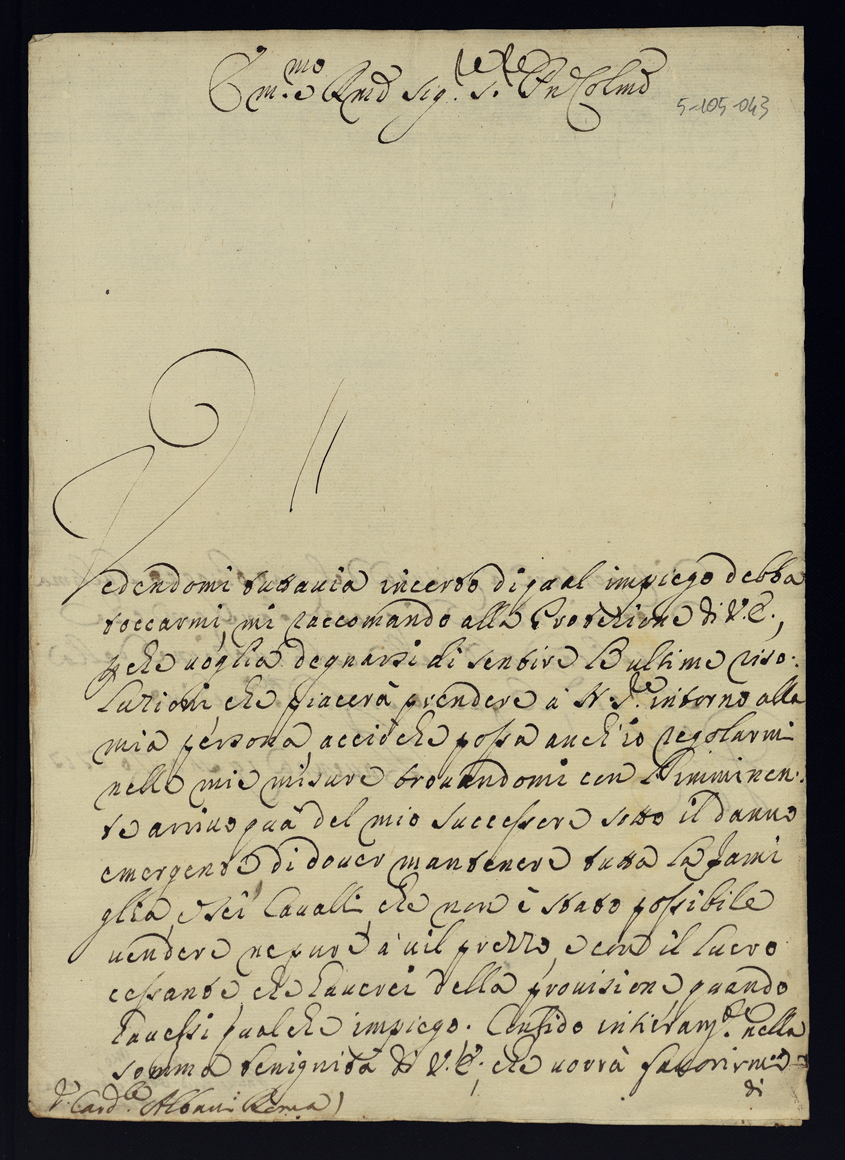 Em.mo e Rmo Sig.re S.re Pne Colmo
5-105-043
Vedendomi tuttavia incerto di qual impiego debba
toccarmi, mi raccomando alla Protezione di V. E.,
p che voglia degnarsi di sentire l'ultime riso-
luzioni che piacerà prendere à N. S.re intorno alla
mia persona, acciò che possa anch'io regolarmi
nelle mie misure trovandomi con l'imminen-
te arrivo quà del mio successore sotto il danno
emergente di dover mantenere tutta la fami
glia, e sei Cavalli, che non è stato possibile
vendere nepure à vil prezzo, e con il lucro
cessante, che haverei della provisione quando
havessi qualche impiego. Confido intieram.te nella
somma benignità di V. E., che vorrà favorirmi
di
S.r Card.le Albani Roma